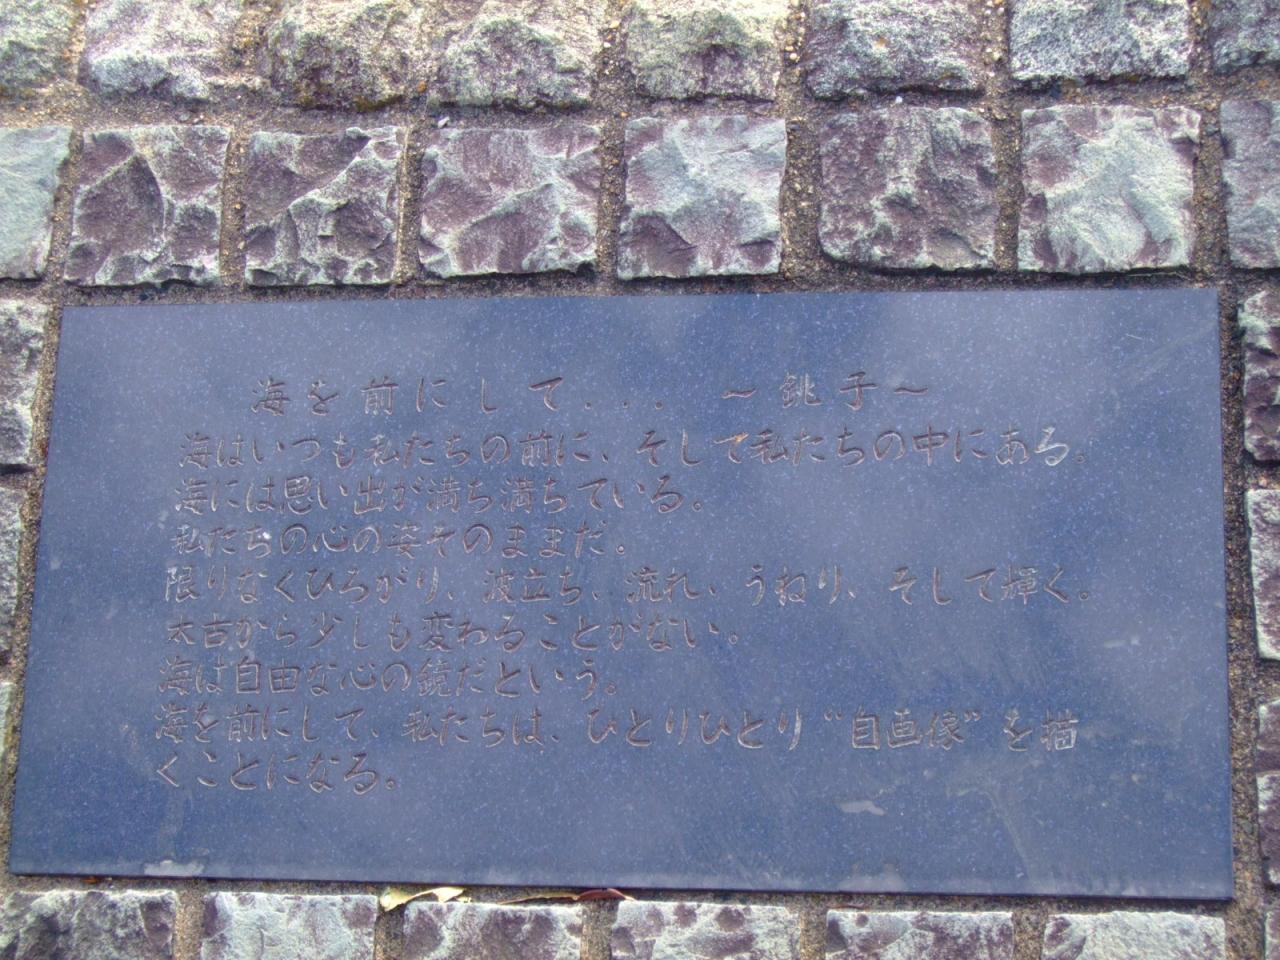 海を前にして... ～銚子～
海はいつも私たちの前に、そして私たちの中にある。
海には思い出が満ち満ちている。
私たちの心の姿そのままだ。
限りなくひろがり、波立ち、流れ、うねり、そして輝く。
太古から少しも変わることがない。
海は自由な心の鏡だという。
海を前にして、私たちは、ひとりひとり“自画像”を描
くことになる。